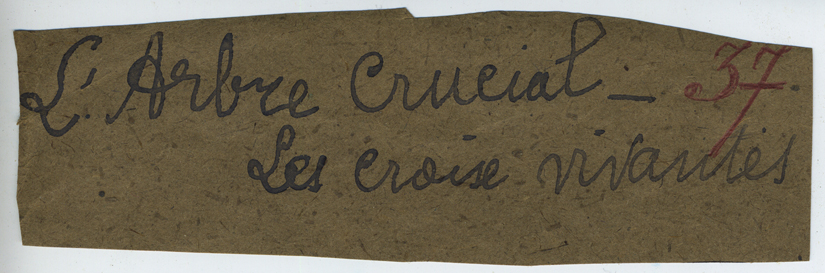 L'Arbre Crucial _ 37.
Les croix vivantes